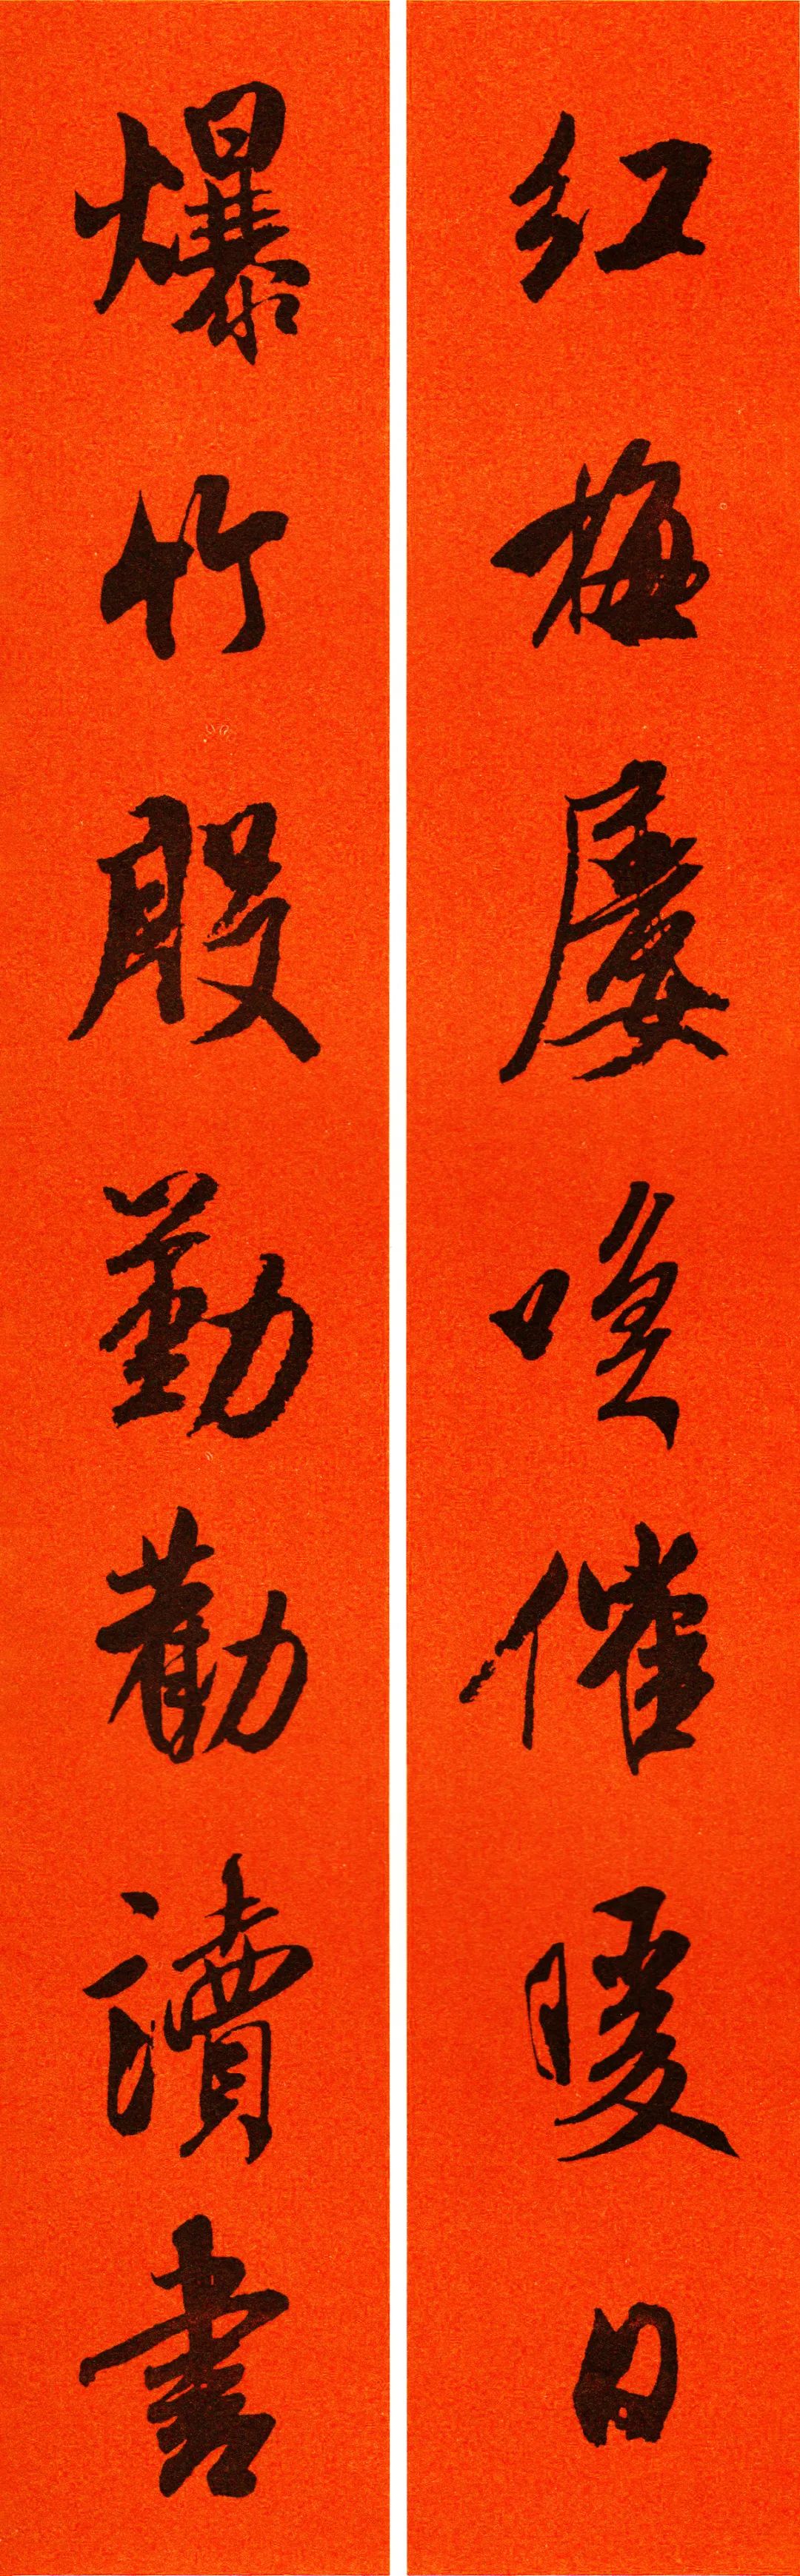 红梅屡唤催暖日
爆竹殷勤勸讀書